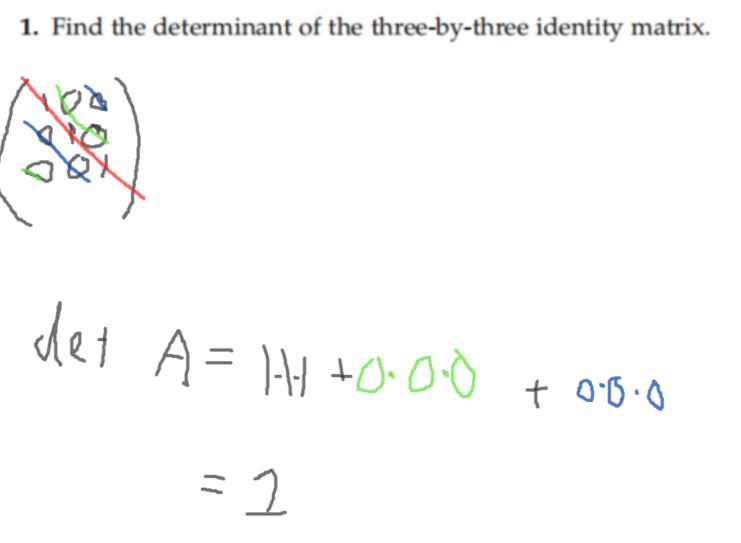 1. Find the determinant of the three-by-three identity matrix.
1 0 0
0 1 0
0 0 1
det A = 1·1·1 + 0·0·0 + 0·0·0
= 1